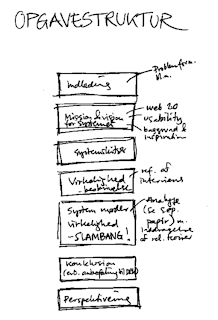 OPGAVESTRUKTUR
Indledning
Problemform.
bl.a.
Mission & vision
for systemet
web 2.0
usability
baggrund &
inspiration
Systemkritik
Virkelighed
- beskrivelse
ref. af
interviews
System møder
virkelighed
- SLAMBANG!
Analyse
(se sep.
papir) m.
inddragelse
af rel. teorier
Konklusion
(evt. anbefaling til
Perspektivering